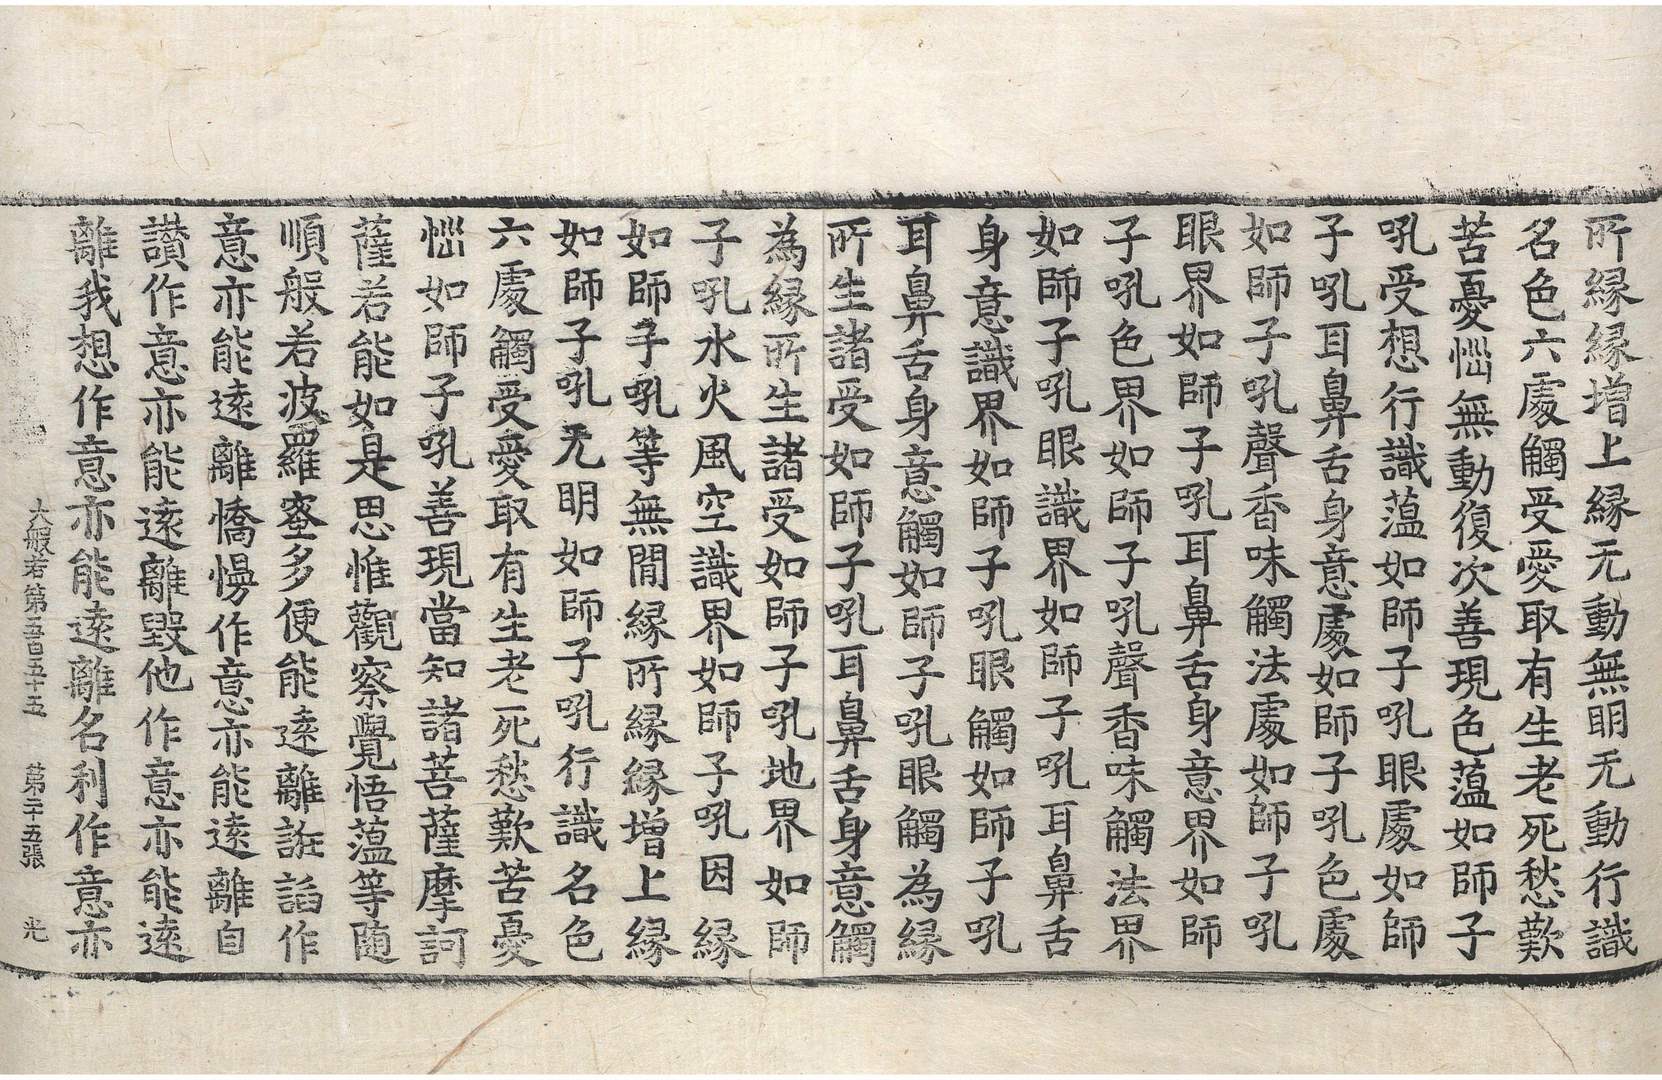 所縁縁增上縁无動無明无動行識
名色六處觸受愛取有生老死愁歎
苦憂惱無動復次善現色蕰如師子
吼受想行識蕰如師子吼眼處如師
子吼耳鼻舌身意處如師子吼色處
如師子吼聲香味觸法處如師子吼
眼界如師子吼耳鼻舌身意界如師
子吼色界如師子吼聲香味觸法界
如師子吼眼識界如師子吼耳鼻舌
身意識界如師子吼眼觸如師子吼
耳鼻舌身意觸如師子吼眼觸為縁
所生諸受如師子吼耳鼻舌身意觸
為縁所生諸受如師子吼地界如師
子吼水火風空識界如師子吼因縁
如師子吼等無間縁所縁縁增上縁
如師子吼无明如師子吼行識名色
六處觸受愛取有生老死愁歎苦憂
惱如師子吼善現當知諸菩薩摩訶
薩若能如是思惟觀察覺悟蕰等随
順般若波羅蜜多便能逺離誑諂作
意亦能逺離憍慢作意亦能逺離自
讃作意亦能逺離毀他作意亦能逺
離我想作意亦能逺離名利作意亦
大般若第五百五十五 第二十五張 光